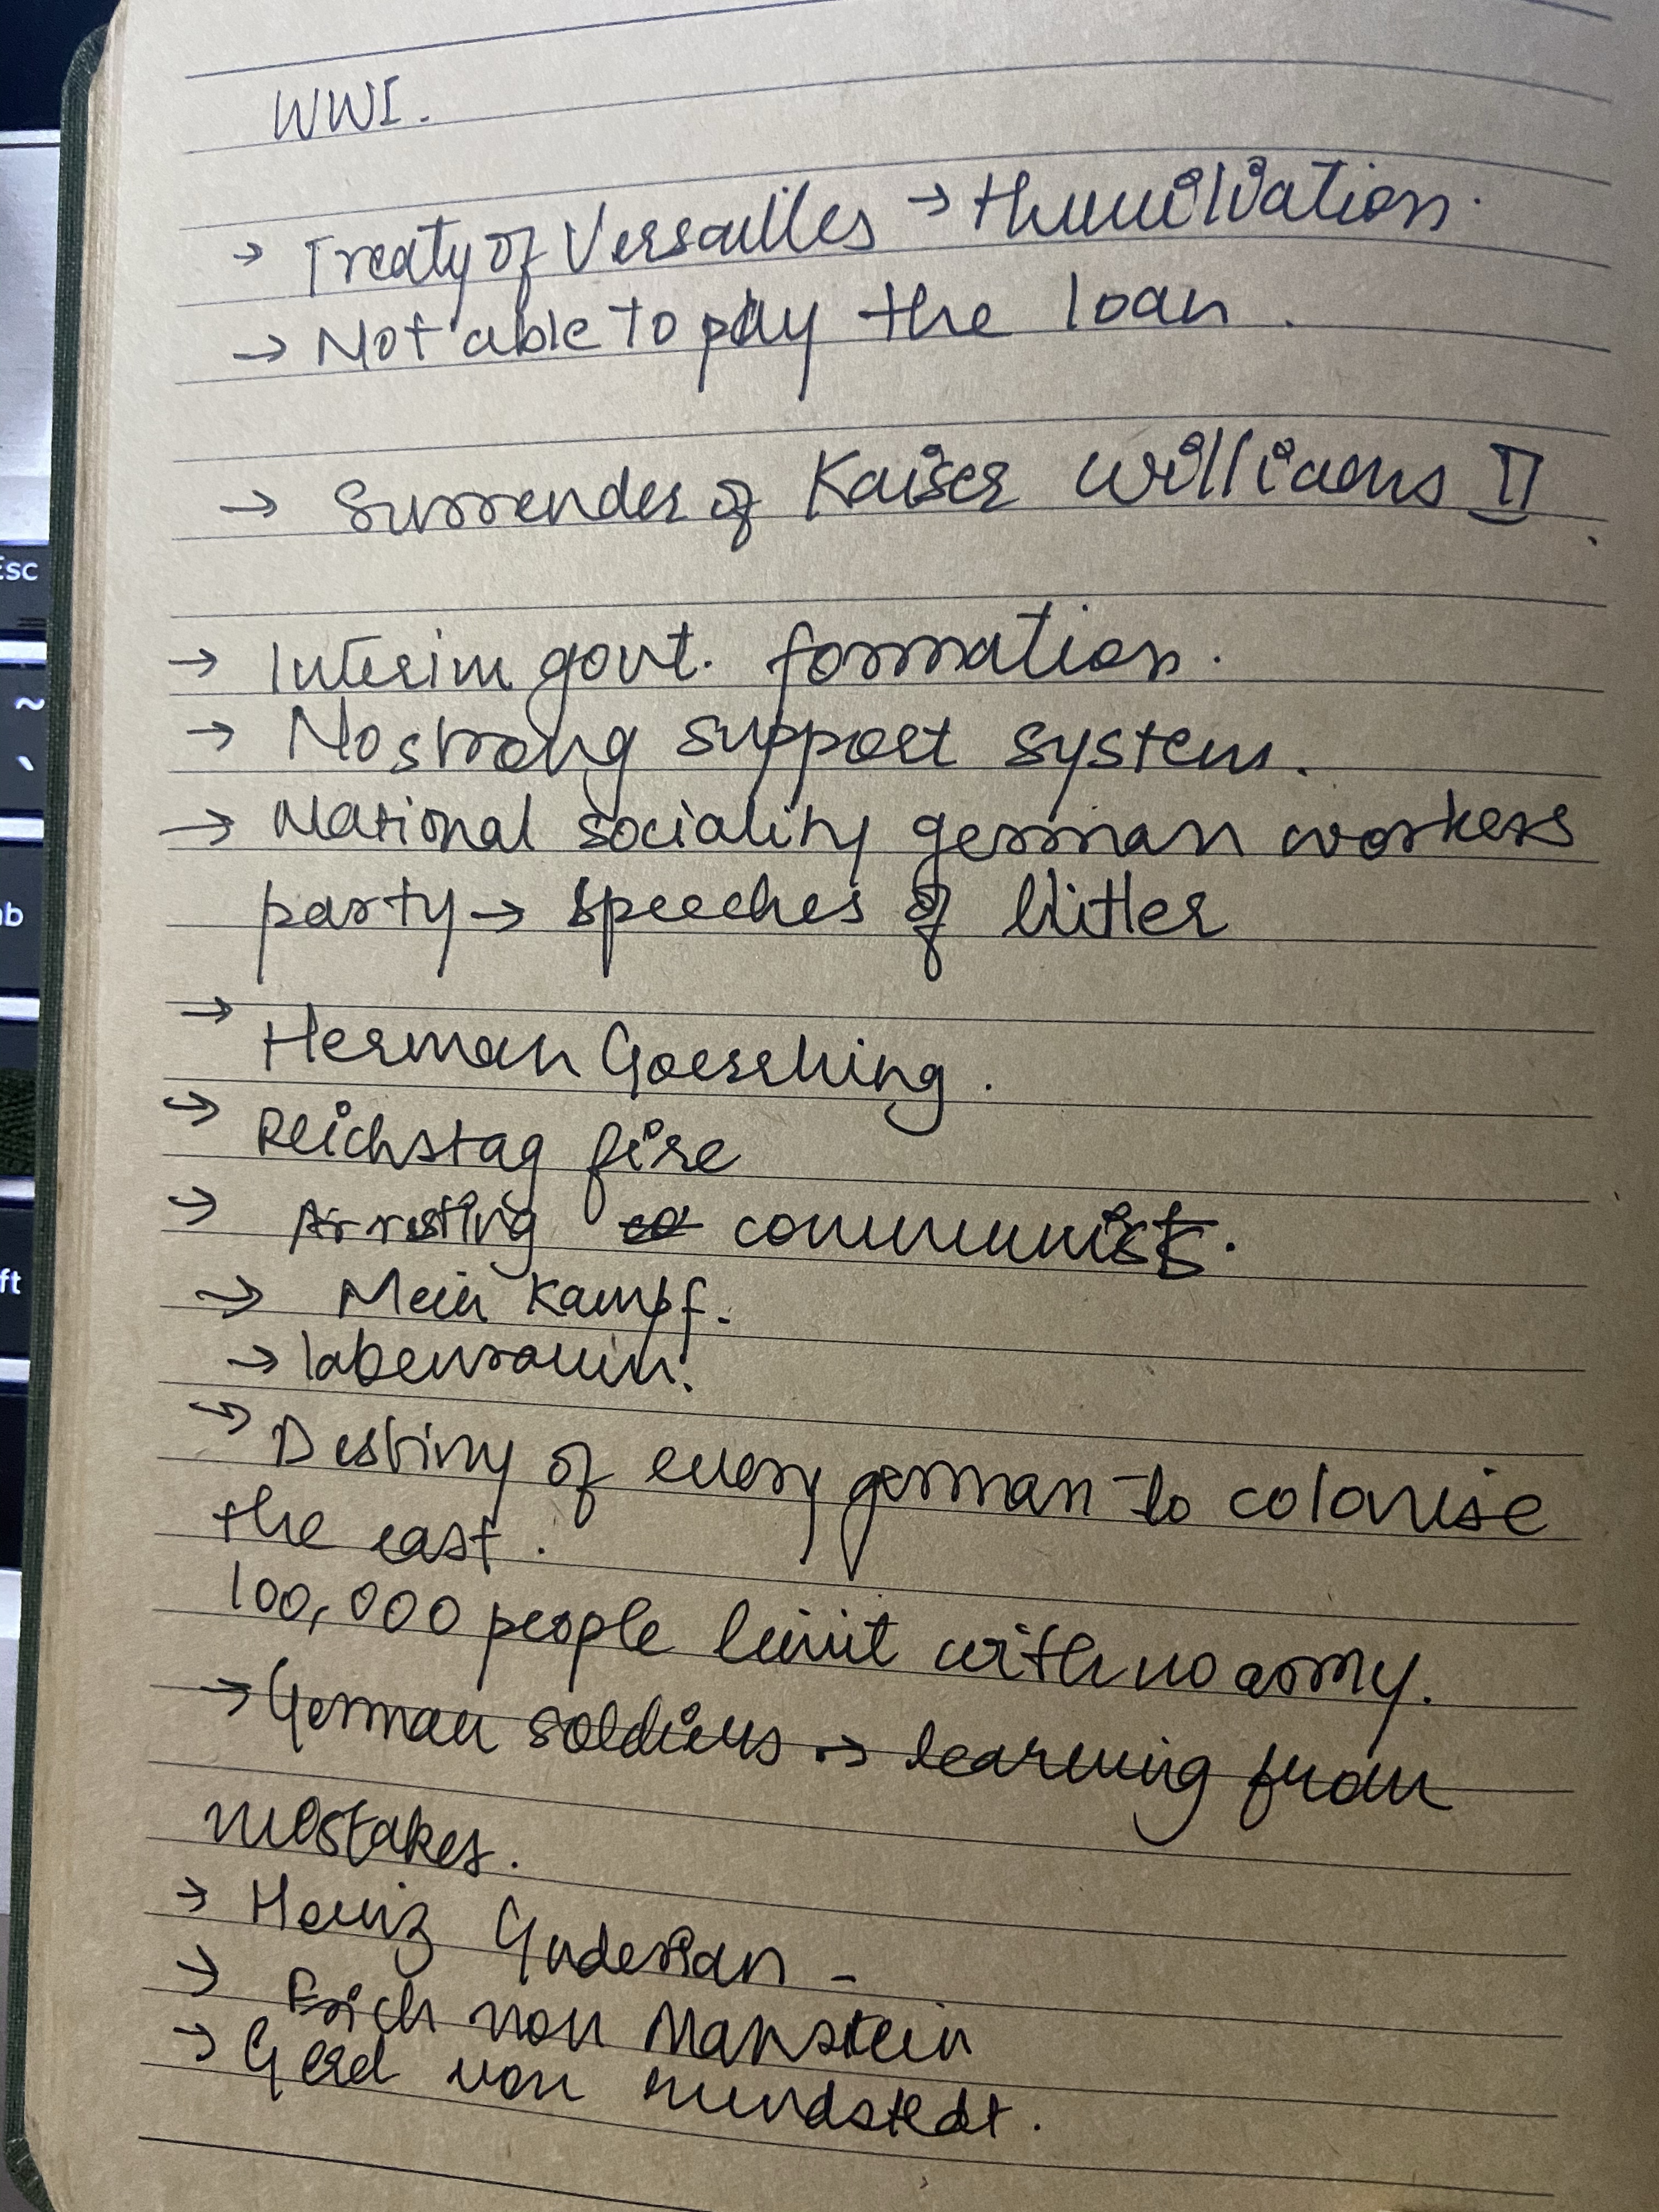 WWI.
→ Treaty of Versailles → Humilivation.
→ Not able to pay the loan.
→ Surrender of Kaiser Williams II.
→ Interim govt. formation.
→ No strong support system.
→ National sociality german workers
party → speeches of Hitler
→ Herman Goerrhing.
→ Reichstag fire
→ Arresting communists.
→ Mein Kampf.
→ labenraum.
→ Destiny of every german to colonise
the east.
100,000 people limit with no army.
→ German soldiers → learning from
mistakes.
→ Heniz Guderian -
→ Erich von Manstein
→ Gerd von rundstedt.
Esc
~
`